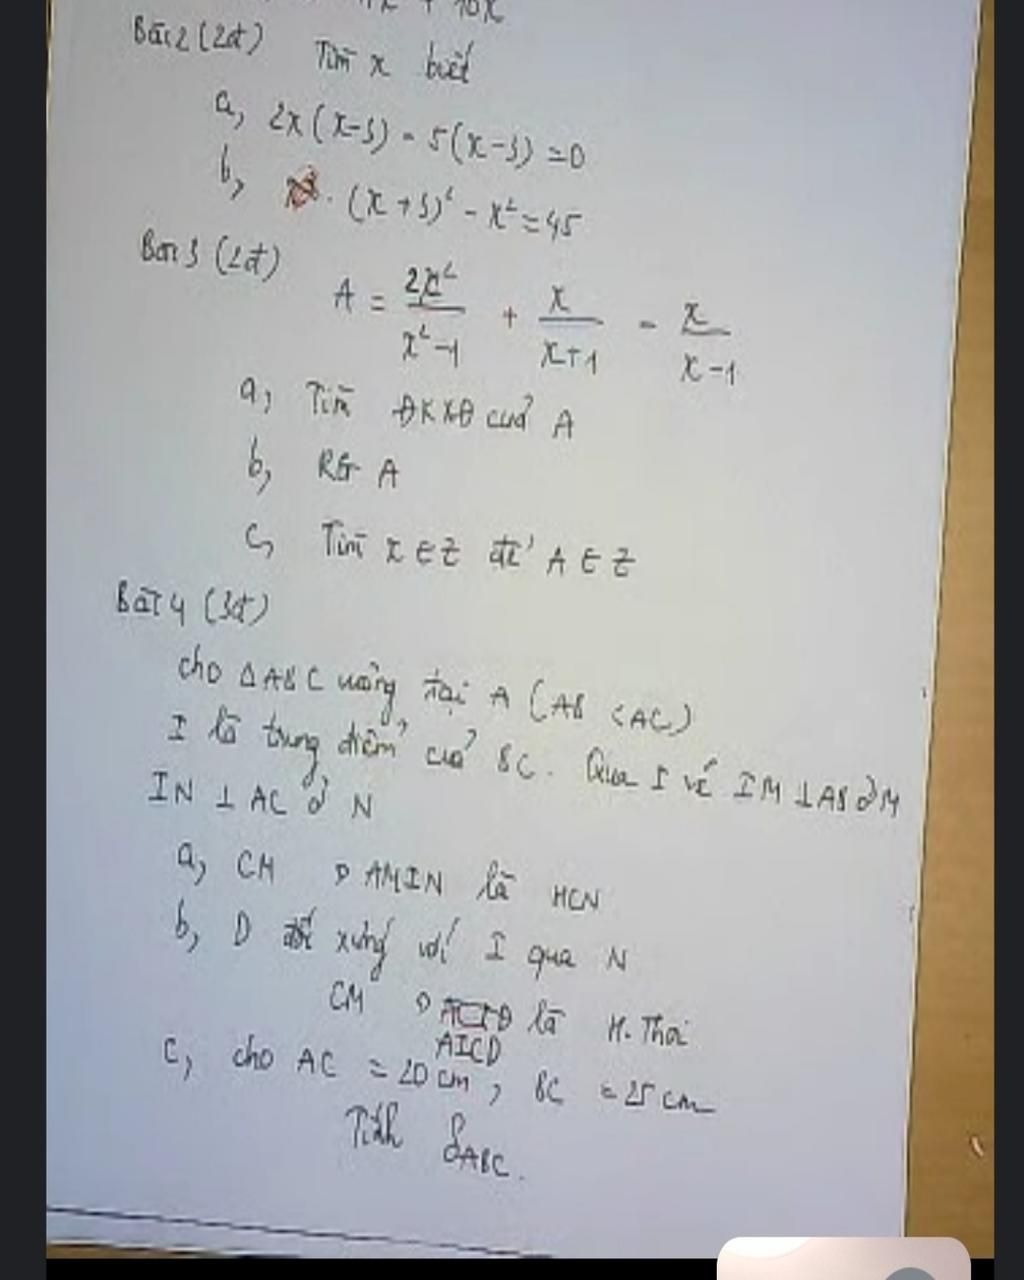 Bài 2 (2đ) Tìm x biết
a, 2x(x-3) - 5(x-3) = 0
b, (x+3)² - x² = 45
Bài 3 (2đ)
A = 2x²/x²-1 + x/x+1 - x/x-1
a, Tìm ĐKXĐ của A
b, RG A
c, Tìm x ∈ Z để A ∈ Z
Bài 4 (3đ)
cho Δ ABC vuông tại A (AB < AC)
I là trung điểm của BC. Qua I vẽ IM ⊥ AB ở M
IN ⊥ AC ở N
a, CM AMIN là HCN
b, D đối xứng với I qua N
CM AICD là H. Thoi
c, cho AC = 20 cm, BC = 25 cm
Tính SABC.